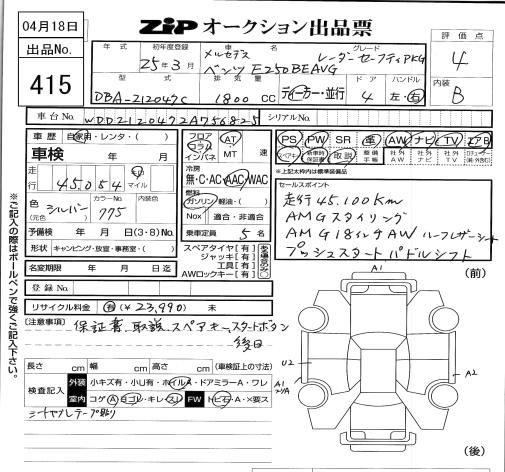 04月18日
ZIP オークション出品票
出品No.
415
評価点
4
内装
B
年式
初年度登録
25年3月
車名
メルセデス
ベンツ E250BEAVG
グレード
レーダーセーフティPKG
型式
DBA-212047C
排気量
1800 CC
ディーカー・並行
ドア
4
ハンドル
左・右
車台No.
WDD2120472A756825
シリアルNo.
車歴 自家用・レンタ・( )
車検 年 月
走行 45,054 km マイル
色 シルバー (元色)
カラーNo. 775
内装色
予備検 年 月 日(3・8)No.
形状 キャンピング・放室・事務室・( )
名変期限 年 月 日迄
登録No.
リサイクル料金 有(¥23,990) 未
フロア コラム インパネ
AT MT 速
冷房
無・C・AC AAC WAC
燃料
ガソリン 軽油・( )
Nox 適合・非適合
乗車定員 5 名
スペアタイヤ【有】
ジャッキ【有】
工具【有】
AWロックキー【有】
PS PW SR 革 AW ナビ TV エアB
スペアキー 新車時保証書 取説 整備手帳 社外AW 社外ナビ 社外TV
*上記太枠内は標準装備品
セールスポイント
走行45.100Km
AMGスタイリング
AMG18インチAW ハーフレザーシート
プッシュスタート パドルシフト
[注意事項] 保証書、取説、スペアキー、スタートボタン
後日
長さ cm 幅 cm 高さ cm (車検証上の寸法)
検査記入
外装 小キズ有・小U有・ホイルA・ドアミラーA・ワレ
室内 コゲA ヨゴレ・キレ・スレ FW トビ石・A・×要ス
シートヤブレテープ貼り
※ご記入の際はボールペンで強くご記入下さい。
(前)
A1
U2
A2
A1
(後)